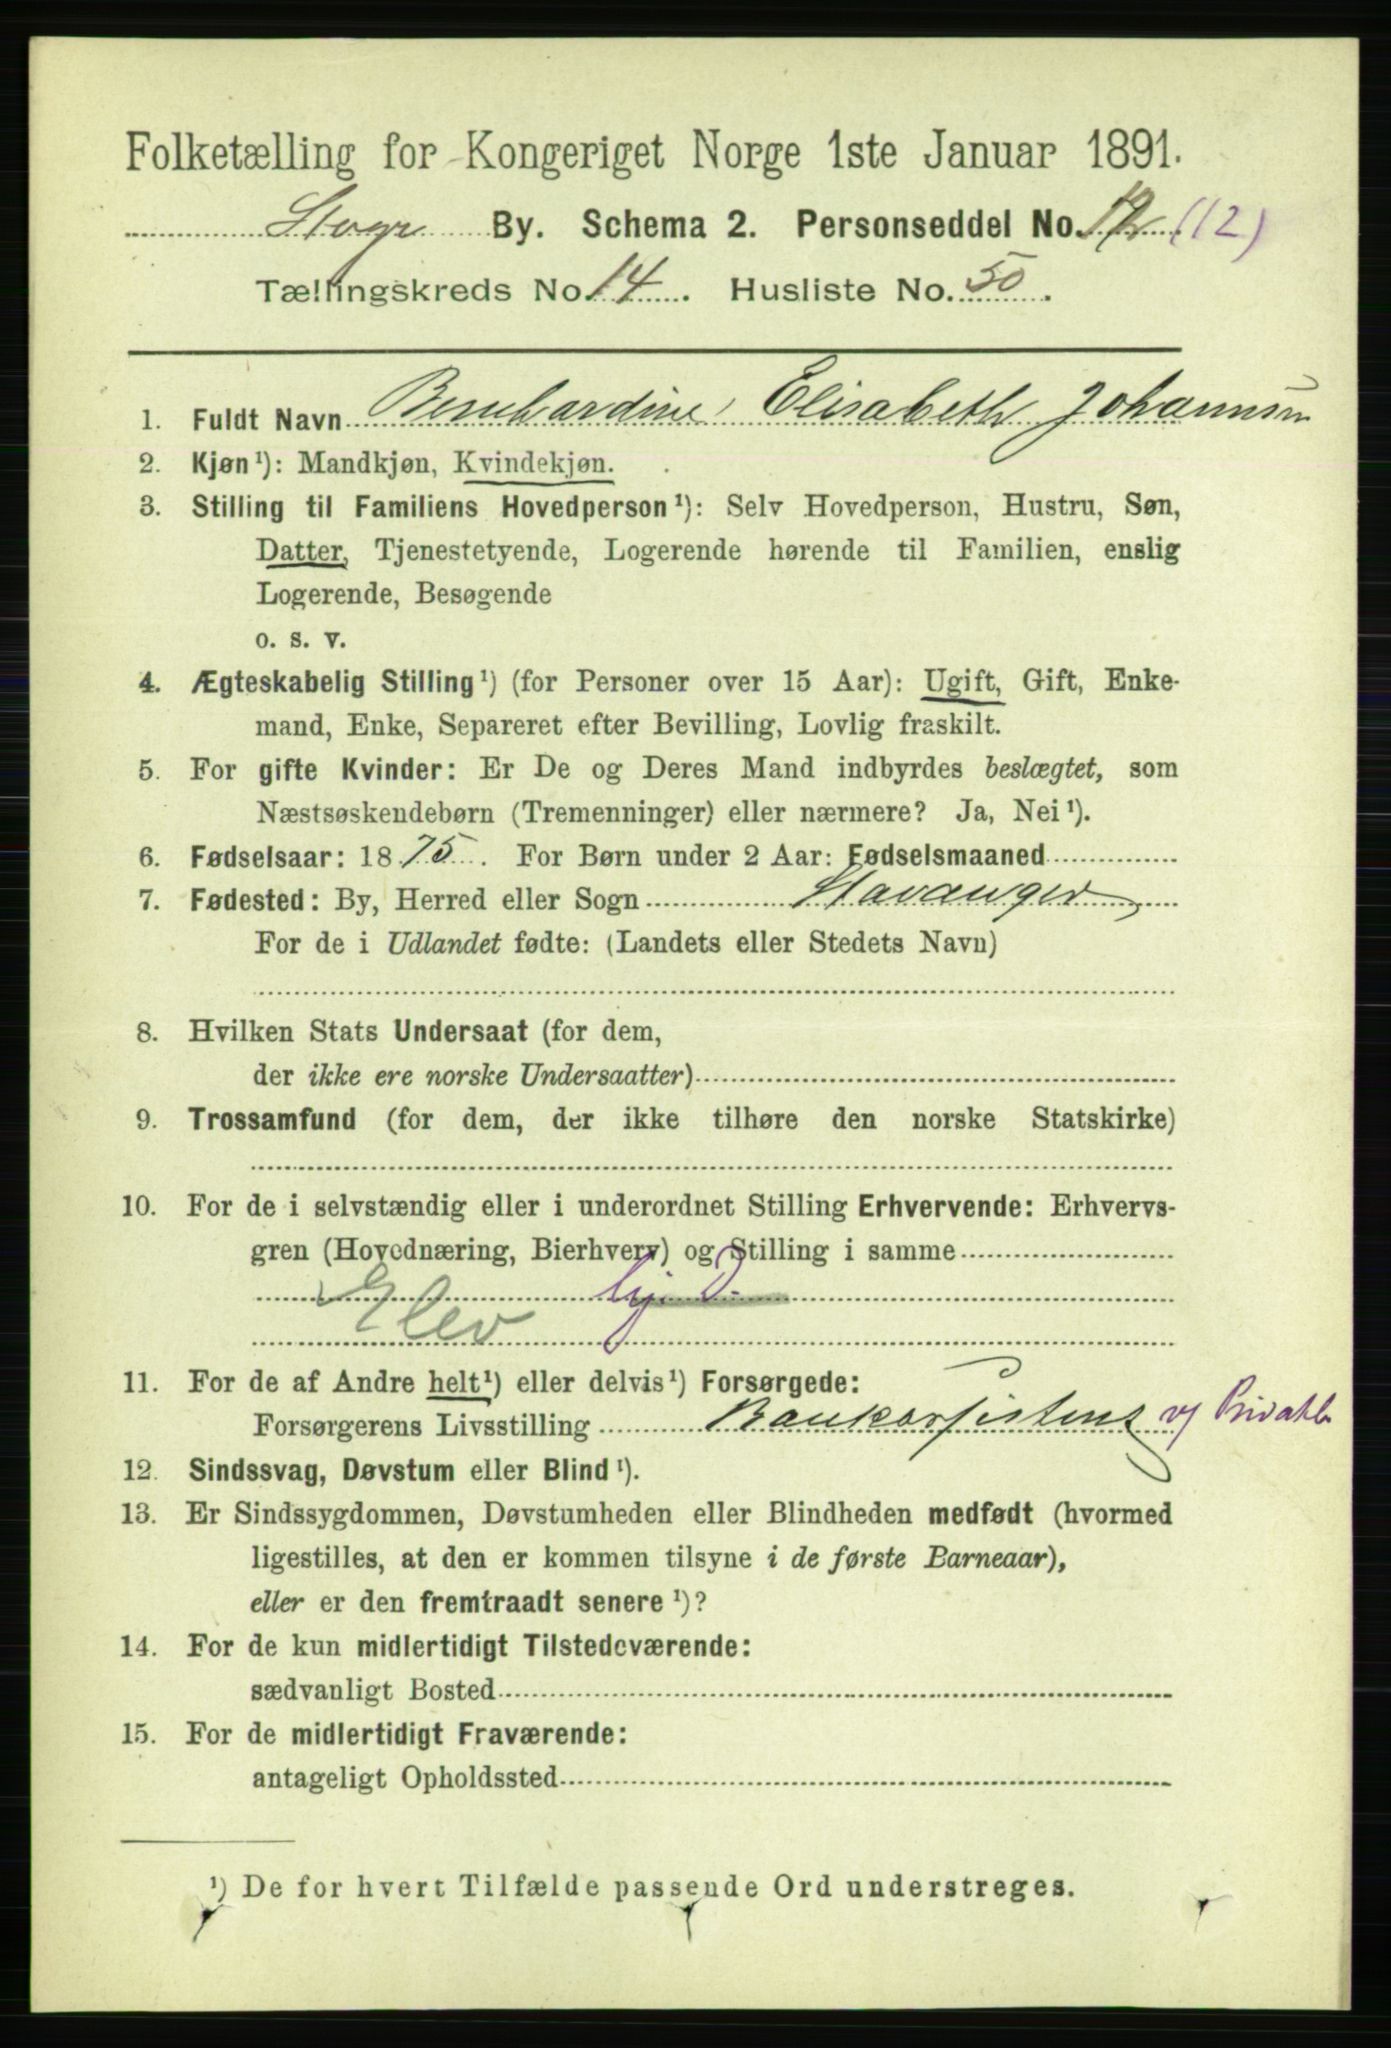 Folketælling for Kongeriget Norge 1ste Januar 1891.
Stvgr By. Schema 2. Personseddel No. 12 (12)
Tællingskreds No. 14. Husliste No. 50.
1. Fuldt Navn Bernhardine Elisabeth Johannsen
2. Kjøn¹): Mandkjøn, Kvindekjøn.
3. Stilling til Familiens Hovedperson¹): Selv Hovedperson, Hustru, Søn,
Datter, Tjenestetyende, Logerende hørende til Familien, enslig
Logerende, Besøgende
o. s. v.
4. Ægteskabelig Stilling¹) (for Personer over 15 Aar): Ugift, Gift, Enke-
mand, Enke, Separeret efter Bevilling, Lovlig fraskilt.
5. For gifte Kvinder: Er De og Deres Mand indbyrdes beslægtet, som
Næstsøskendebørn (Tremenninger) eller nærmere? Ja, Nei¹).
6. Fødselsaar: 1875. For Børn under 2 Aar: Fødselsmaaned
7. Fødested: By, Herred eller Sogn Stavanger
For de i Udlandet fødte: (Landets eller Stedets Navn)
8. Hvilken Stats Undersaat (for dem,
der ikke ere norske Undersaatter)
9. Trossamfund (for dem, der ikke tilhøre den norske Statskirke)
10. For de i selvstændig eller i underordnet Stilling Erhvervende: Erhvervs-
gren (Hovednæring, Bierhverv) og Stilling i samme
Elev
11. For de af Andre helt¹) eller delvis¹) Forsørgede:
Forsørgerens Livsstilling Bankassistent v/ Privatb
12. Sindssvag, Døvstum eller Blind¹).
13. Er Sindssygdommen, Døvstumheden eller Blindheden medfødt (hvormed
ligestilles, at den er kommen tilsyne i de første Barneaar),
eller er den fremtraadt senere¹)?
14. For de kun midlertidigt Tilstedeværende:
sædvanligt Bosted
15. For de midlertidigt Fraværende:
antageligt Opholdssted
¹) De for hvert Tilfælde passende Ord understreges.